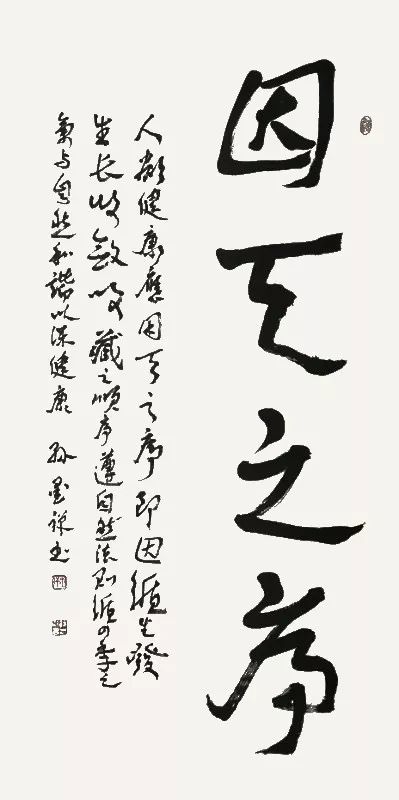 因天之序
人健康應因天之序即因循生發
生长收敛收藏之順序遵自然法则循四季之
氣与自然和諧以保健康 孙墨书